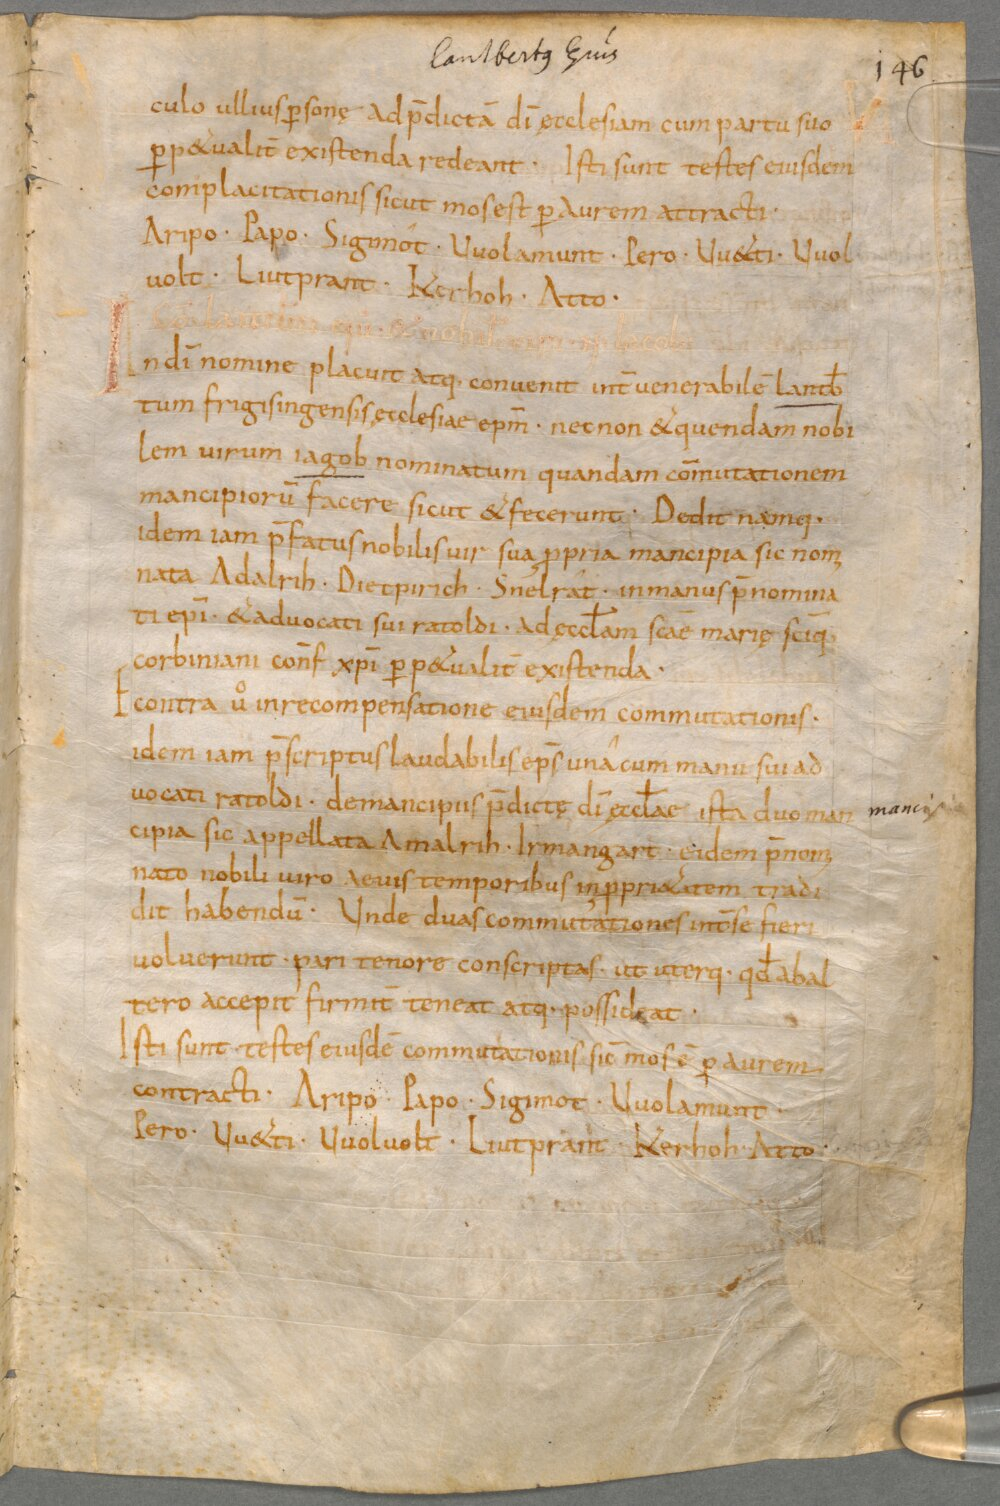 Lantbertus Epus
146
culo ullius p̱sonę ad p̄dictā dī ęcclesiam cum partu suo
ꝑp&ualit̄ existenda redeant · Isti sunt testes eiusdem
complacitationis sicut mos est ꝑ aurem attracti ·
Aripo · Papo · Sigimót · Uuolamunt · Pero · Uu&ti · Uuol
uolt · Liutprant · Kerhoh · Atto ·
In dī nomine placuit atq· convenit int̄ venerabilē lantb̄
tum frigisingensis ęcclesiae epm̄ · nec non & quendam nobi
lem uirum iagob nominatum quandam com̄utationem
mancipiorū facere sicut & fecerunt · Dedit namq·
idem iam p̄fatus nobilis uir sua ꝓpria mancipia sic nomi
nata Adalrih · Dietpirich · Snélrát · in manus p̄nomina
ti epī · & aduocati sui ratoldi · ad ęccłam scāe marię scīq·
corbiniani conf̄ xpī ꝑp&ualit̄ existenda ·
Econtra uͦ in recompensatione eiusdem commutationis ·
idem iam p̄scriptus laudabilis ep̄s unâ cum manu sui ad
uocati ratoldi · de mancipiis p̄dictę dī ęccłae ista duo man
mancip
cipia sic appellata Amalrih · Irmangart · eidem p̄nomi
nato nobili uiro aeuis temporibus in ꝓpri&atem tradi
dit habendū · Unde duas commutationes int̄ se fieri
uoluerunt · pari tenore conscriptas · ut uterq· qd̄ ab al
tero accepit firmit̄ teneat atq· possideat ·
Isti sunt testes eiusdē commutationis sic̄ mos ē ꝑ aurem
contracti · Aripo · Papo · Sigimot · Uuolamunt ·
Pero · Uu&ti · Uuoluolt · Liutprant · Kerhoh · Atto ·